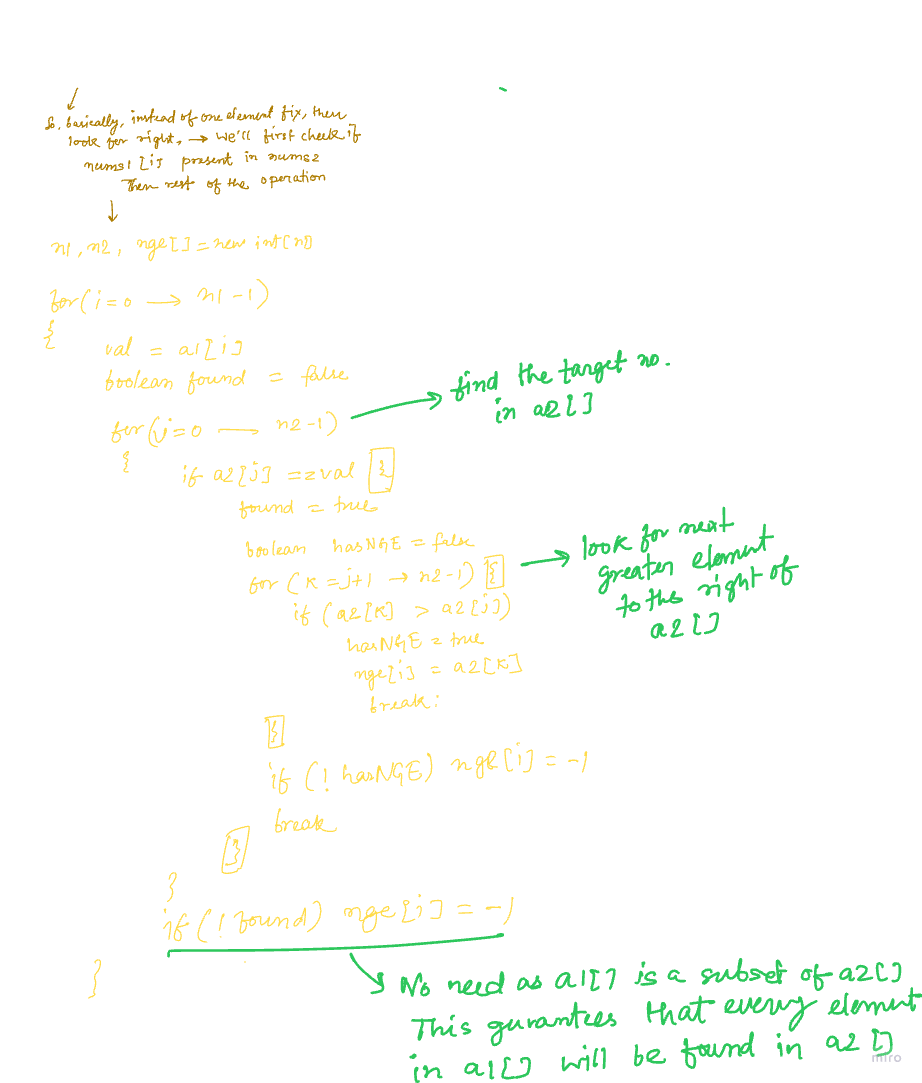 So, basically, instead of one element fix, then
look for right, → we'll first check if
nums1 [i] present in nums2
Then rest of the operation
n1, n2, nge[] = new int[n1]
for(i=0 → n1-1)
{
val = a1[i]
boolean found = false
for(j=0 — n2-1)
find the target no.
in a2[]
{
if a2[j] == val {
found = true
boolean hasNGE = false
for (k=j+1 → n2-1) {
look for next
greater element
to the right of
a2[]
if (a2[k] > a2[j])
hasNGE = true
nge[i] = a2[k]
break;
}
if (! hasNGE) nge[i] = -1
break
}
}
if (! found) nge[i] = -1
}
No need as a1[] is a subset of a2[]
This gurantees that every element
in a1[] will be found in a2[]
miro